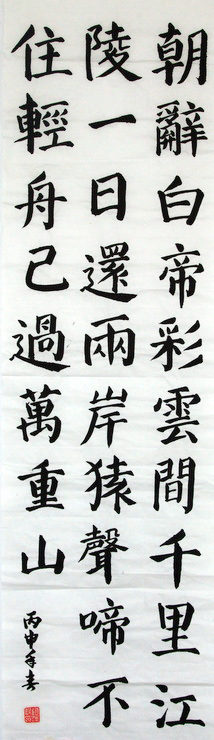 朝辭白帝彩雲間千里江
陵一日還兩岸猿聲啼不
住輕舟已過萬重山
丙申年春